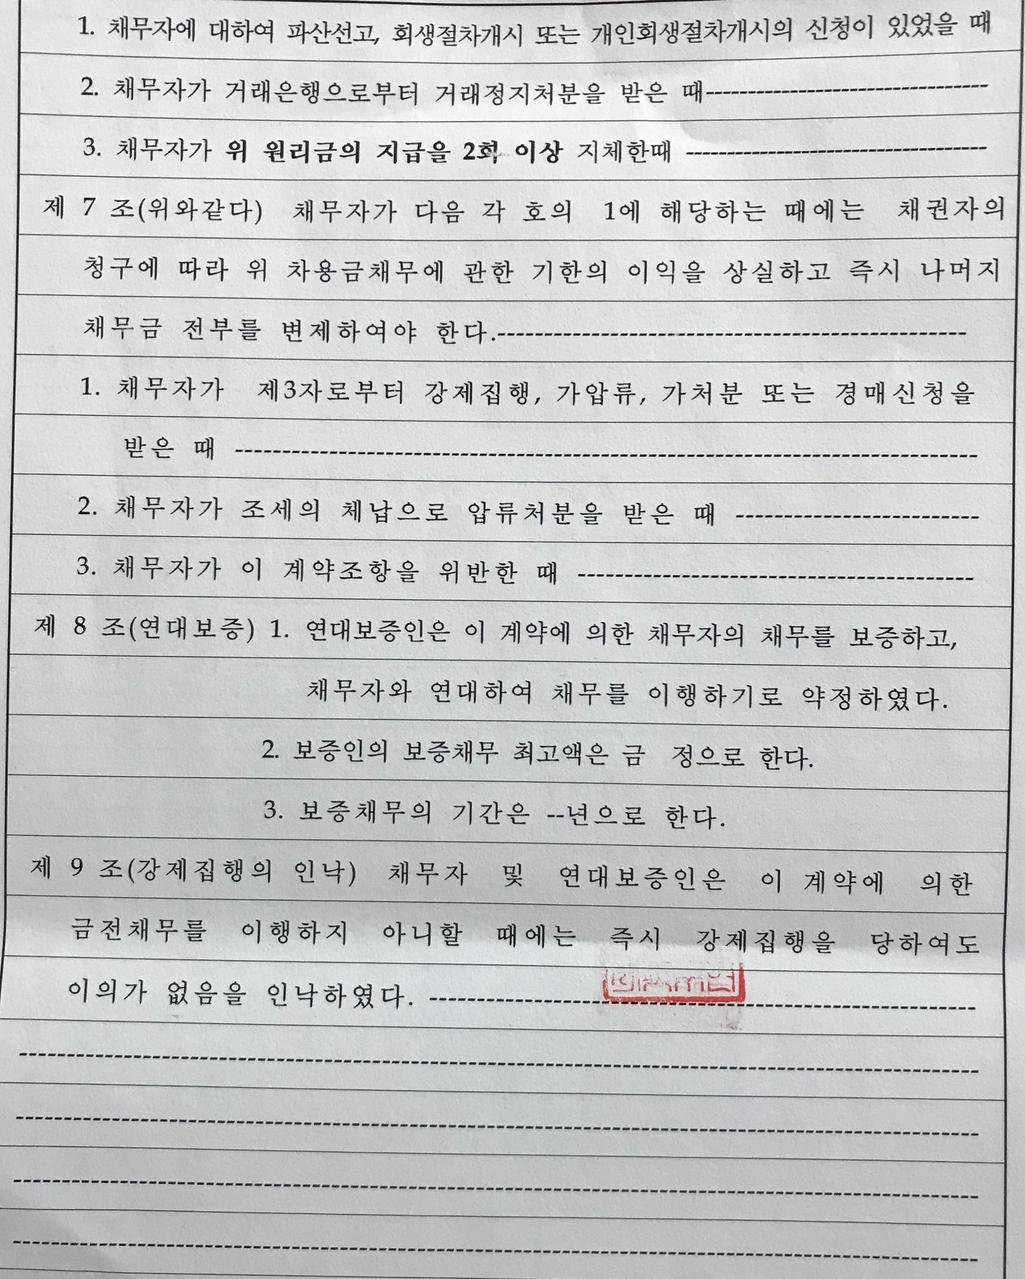 1. 채무자에 대하여 파산선고, 회생절차개시 또는 개인회생절차개시의 신청이 있었을 때
2. 채무자가 거래은행으로부터 거래정지처분을 받은 때
3. 채무자가 위 원리금의 지급을 2회 이상 지체한때
제 7 조(위와같다) 채무자가 다음 각 호의 1에 해당하는 때에는 채권자의
청구에 따라 위 차용금채무에 관한 기한의 이익을 상실하고 즉시 나머지
채무금 전부를 변제하여야 한다.
1. 채무자가 제3자로부터 강제집행, 가압류, 가처분 또는 경매신청을
받은 때
2. 채무자가 조세의 체납으로 압류처분을 받은 때
3. 채무자가 이 계약조항을 위반한 때
제 8 조(연대보증) 1. 연대보증인은 이 계약에 의한 채무자의 채무를 보증하고,
채무자와 연대하여 채무를 이행하기로 약정하였다.
2. 보증인의 보증채무 최고액은 금 정으로 한다.
3. 보증채무의 기간은 --년으로 한다.
제 9 조(강제집행의 인낙) 채무자 및 연대보증인은 이 계약에 의한
금전채무를 이행하지 아니할 때에는 즉시 강제집행을 당하여도
이의가 없음을 인낙하였다.